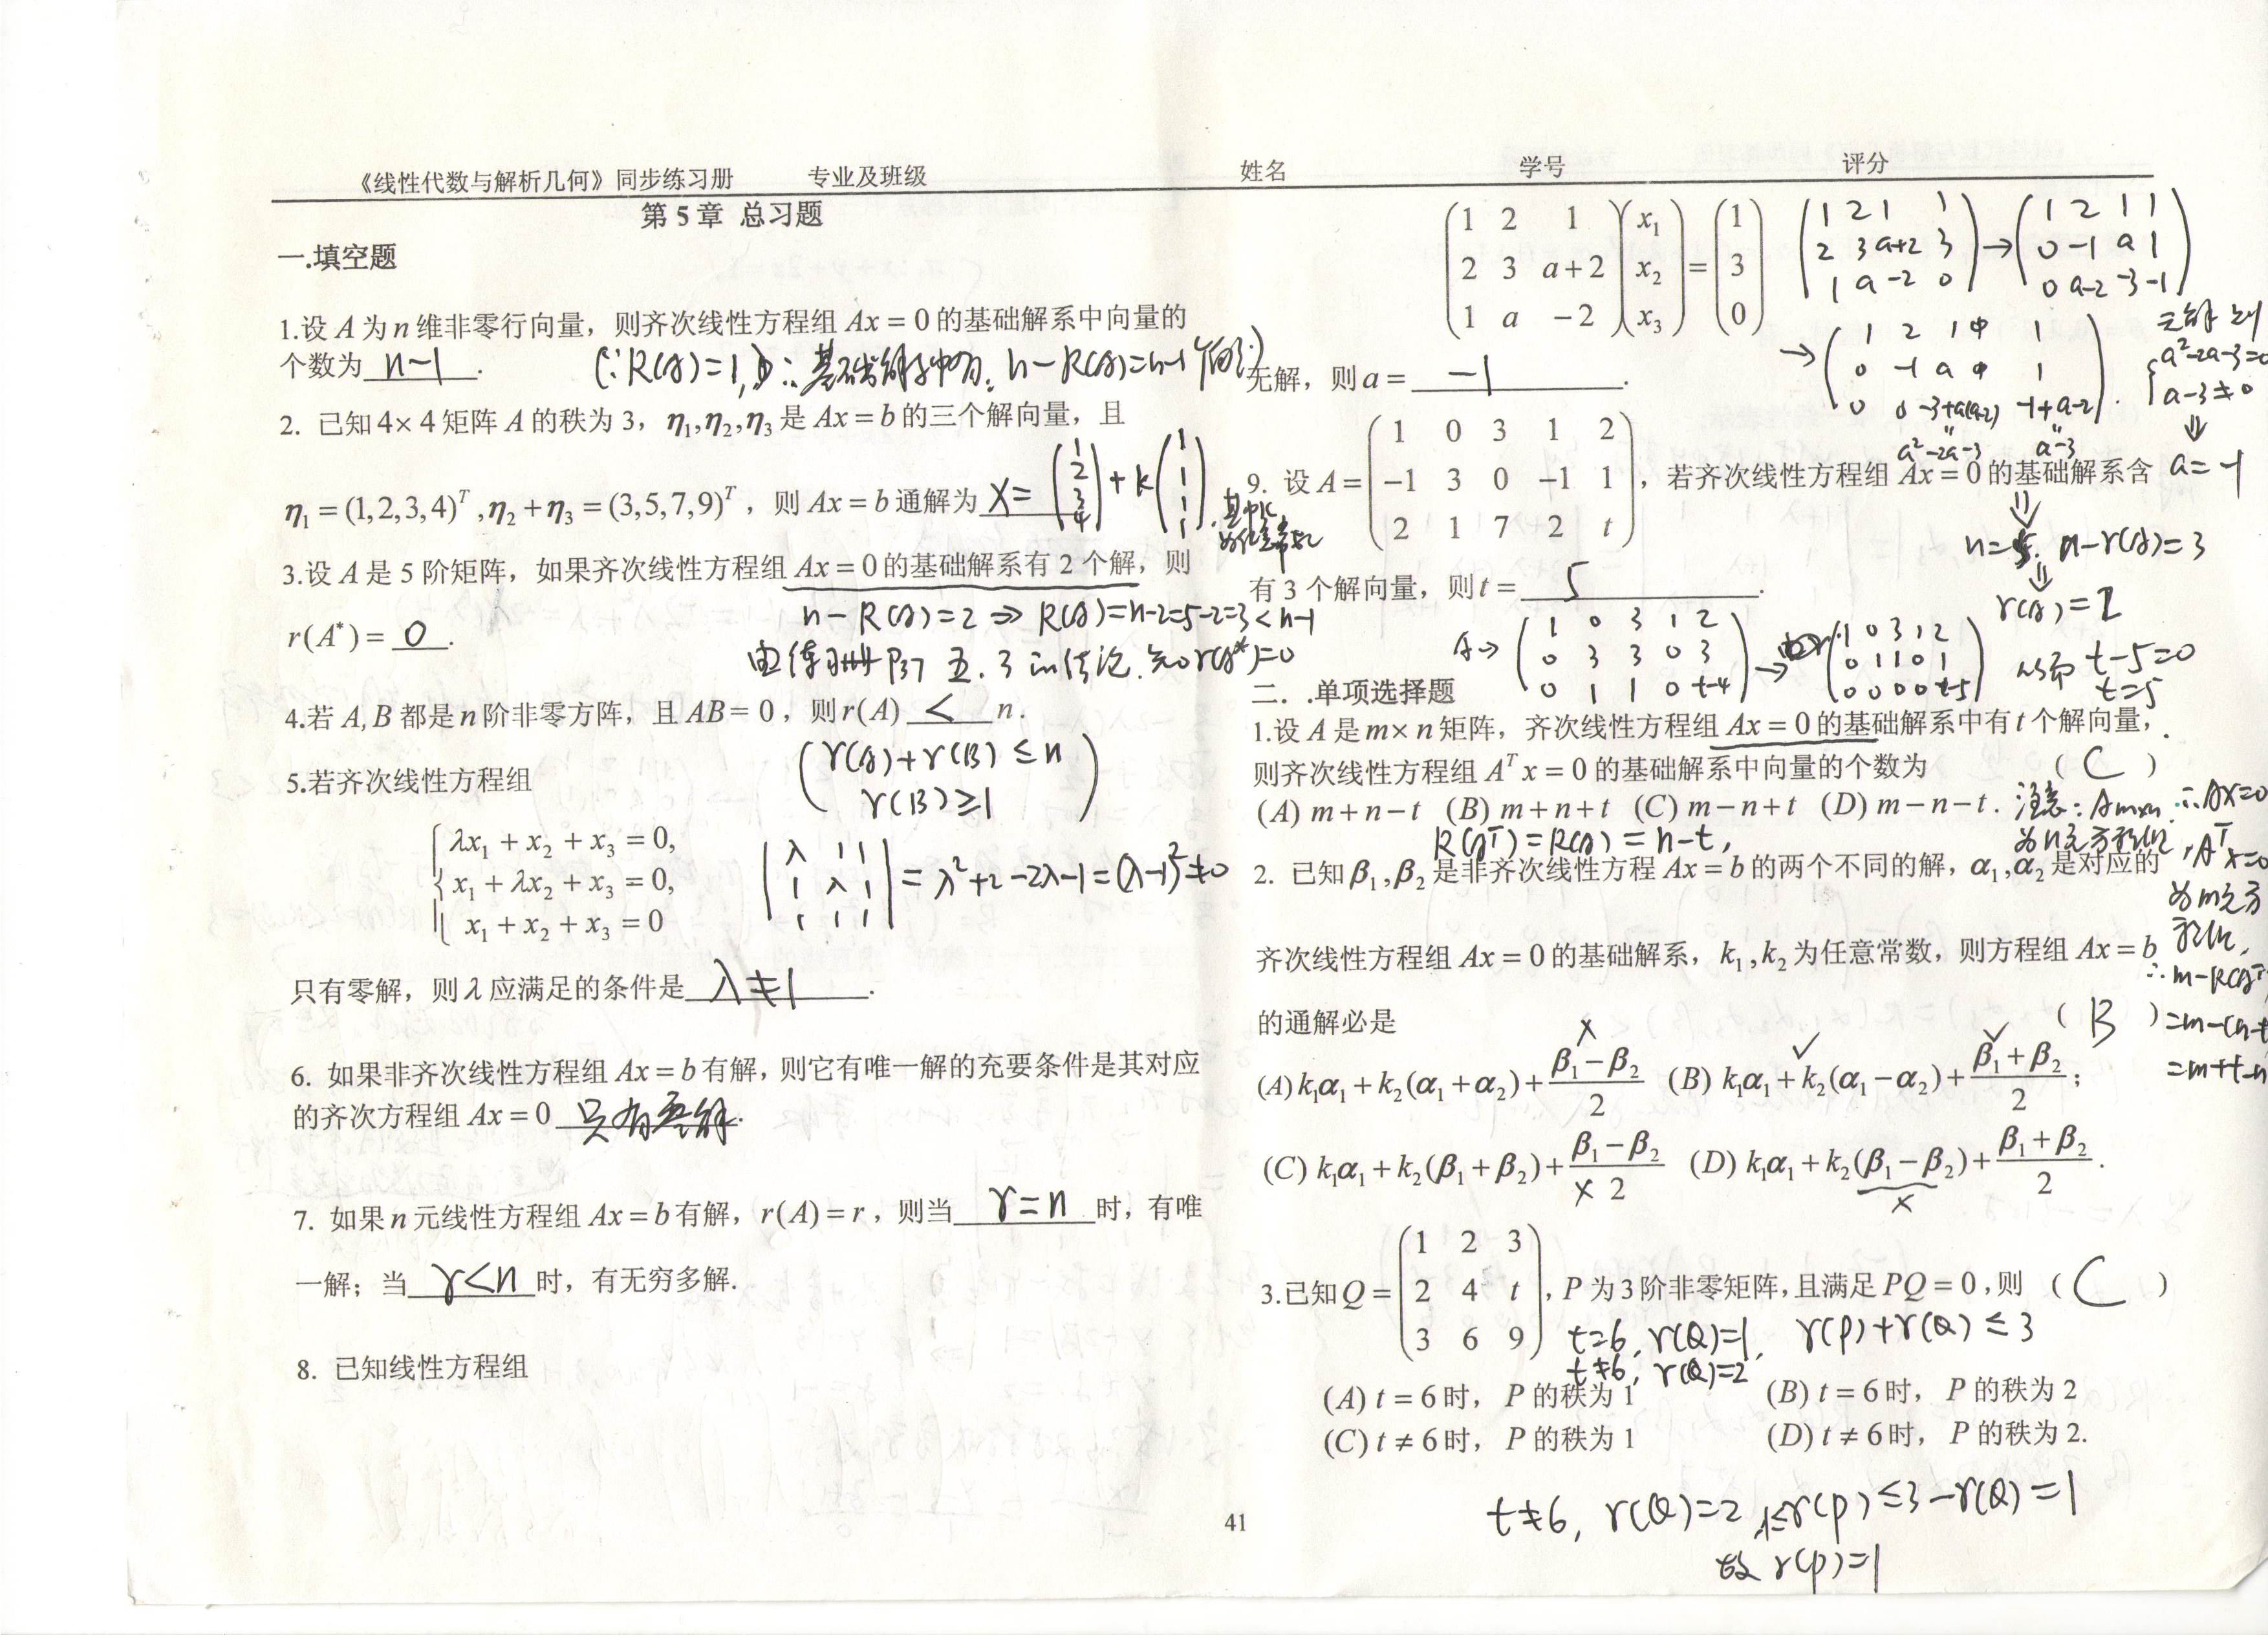 《线性代数与解析几何》同步练习册 专业及班级 姓名 学号 评分
第 5 章 总习题
一.填空题
1.设 A 为 n 维非零行向量，则齐次线性方程组 Ax = 0 的基础解系中向量的
个数为 n-1 .
(∵R(A)=1, ∴基础解系中有 n-R(A)=n-1个向量)
2. 已知 4×4 矩阵 A 的秩为 3，η₁,η₂,η₃ 是 Ax = b 的三个解向量，且
η₁ = (1,2,3,4)ᵀ ,η₂ + η₃ = (3,5,7,9)ᵀ，则 Ax = b 通解为 X= (1 2 3 4) + k (1 1 1 1) . 其中k
为任意常数
3.设 A 是 5 阶矩阵，如果齐次线性方程组 Ax = 0 的基础解系有 2 个解，则
n-R(A)=2 ⇒ R(A)=n-2=5-2=3<n-1
r(A*) = 0 .
由练习册P37 五.3 的结论.知r(A*)=0
4.若 A,B 都是 n 阶非零方阵，且 AB = 0，则 r(A) < n .
(r(A)+r(B)≤n
r(B)≥1)
5.若齐次线性方程组
λx₁ + x₂ + x₃ = 0,
x₁ + λx₂ + x₃ = 0,
x₁ + x₂ + x₃ = 0
|λ 1 1
1 λ 1
1 1 1| = λ²+2-2λ-1=(λ-1)²≠0
只有零解，则 λ 应满足的条件是 λ≠1 .
6. 如果非齐次线性方程组 Ax = b 有解，则它有唯一解的充要条件是其对应
的齐次方程组 Ax = 0 只有零解.
7. 如果 n 元线性方程组 Ax = b 有解，r(A) = r，则当 r=n 时，有唯
一解；当 r<n 时，有无穷多解.
8. 已知线性方程组
(1 2 1
2 3 a+2
1 a -2) (x₁ x₂ x₃) = (1 3 0)
(1 2 1 1
2 3 a+2 3
1 a -2 0) → (1 2 1 1
0 -1 a 1
0 a-2 -3 -1)
→ (1 2 1 1
0 -1 a 1
0 0 -3+a(a-2) -1+a-2).
a²-2a-3 a-3
无解 则
a²-2a-3=0
a-3≠0
⇓
a=-1
无解，则 a = -1 .
9. 设 A = (1 0 3 1 2
-1 3 0 -1 1
2 1 7 2 t)，若齐次线性方程组 Ax = 0 的基础解系含
有 3 个解向量，则 t = 5 .
⇓
n=5. n-r(A)=3
⇓
r(A)=2
从而 t-5=0
t=5
A→ (1 0 3 1 2
0 3 3 0 3
0 1 1 0 t-4) → (1 0 3 1 2
0 1 1 0 1
0 0 0 0 t-5)
二．.单项选择题
1.设 A 是 m×n 矩阵，齐次线性方程组 Ax = 0 的基础解系中有 t 个解向量，
则齐次线性方程组 Aᵀx = 0 的基础解系中向量的个数为 ( C )
(A) m+n-t (B) m+n+t (C) m-n+t (D) m-n-t .
R(Aᵀ)=R(A)=n-t,
注意:Am×n ∴AX=0
为n元方程组
,Aᵀx=0
为m元方
程组,
∴m-R(Aᵀ)
=m-(n-t
=m+t-n
2. 已知 β₁,β₂ 是非齐次线性方程 Ax = b 的两个不同的解，α₁,α₂ 是对应的
齐次线性方程组 Ax = 0 的基础解系，k₁,k₂ 为任意常数，则方程组 Ax = b
的通解必是 ( B )
(A) k₁α₁ + k₂(α₁+α₂) + (β₁-β₂)/2 (B) k₁α₁ + k₂(α₁-α₂) + (β₁+β₂)/2 ;
(C) k₁α₁ + k₂(β₁+β₂) + (β₁-β₂)/2 (D) k₁α₁ + k₂(β₁-β₂) + (β₁+β₂)/2 .
3.已知 Q = (1 2 3
2 4 t
3 6 9)，P 为 3 阶非零矩阵，且满足 PQ = 0，则 ( C )
t=6, r(Q)=1, r(P)+r(Q)≤3
t≠6, r(Q)=2
(A) t = 6 时， P 的秩为 1 (B) t = 6 时， P 的秩为 2
(C) t ≠ 6 时， P 的秩为 1 (D) t ≠ 6 时， P 的秩为 2.
t≠6, r(Q)=2, 1≤r(P)≤3-r(Q)=1
故 r(P)=1
41